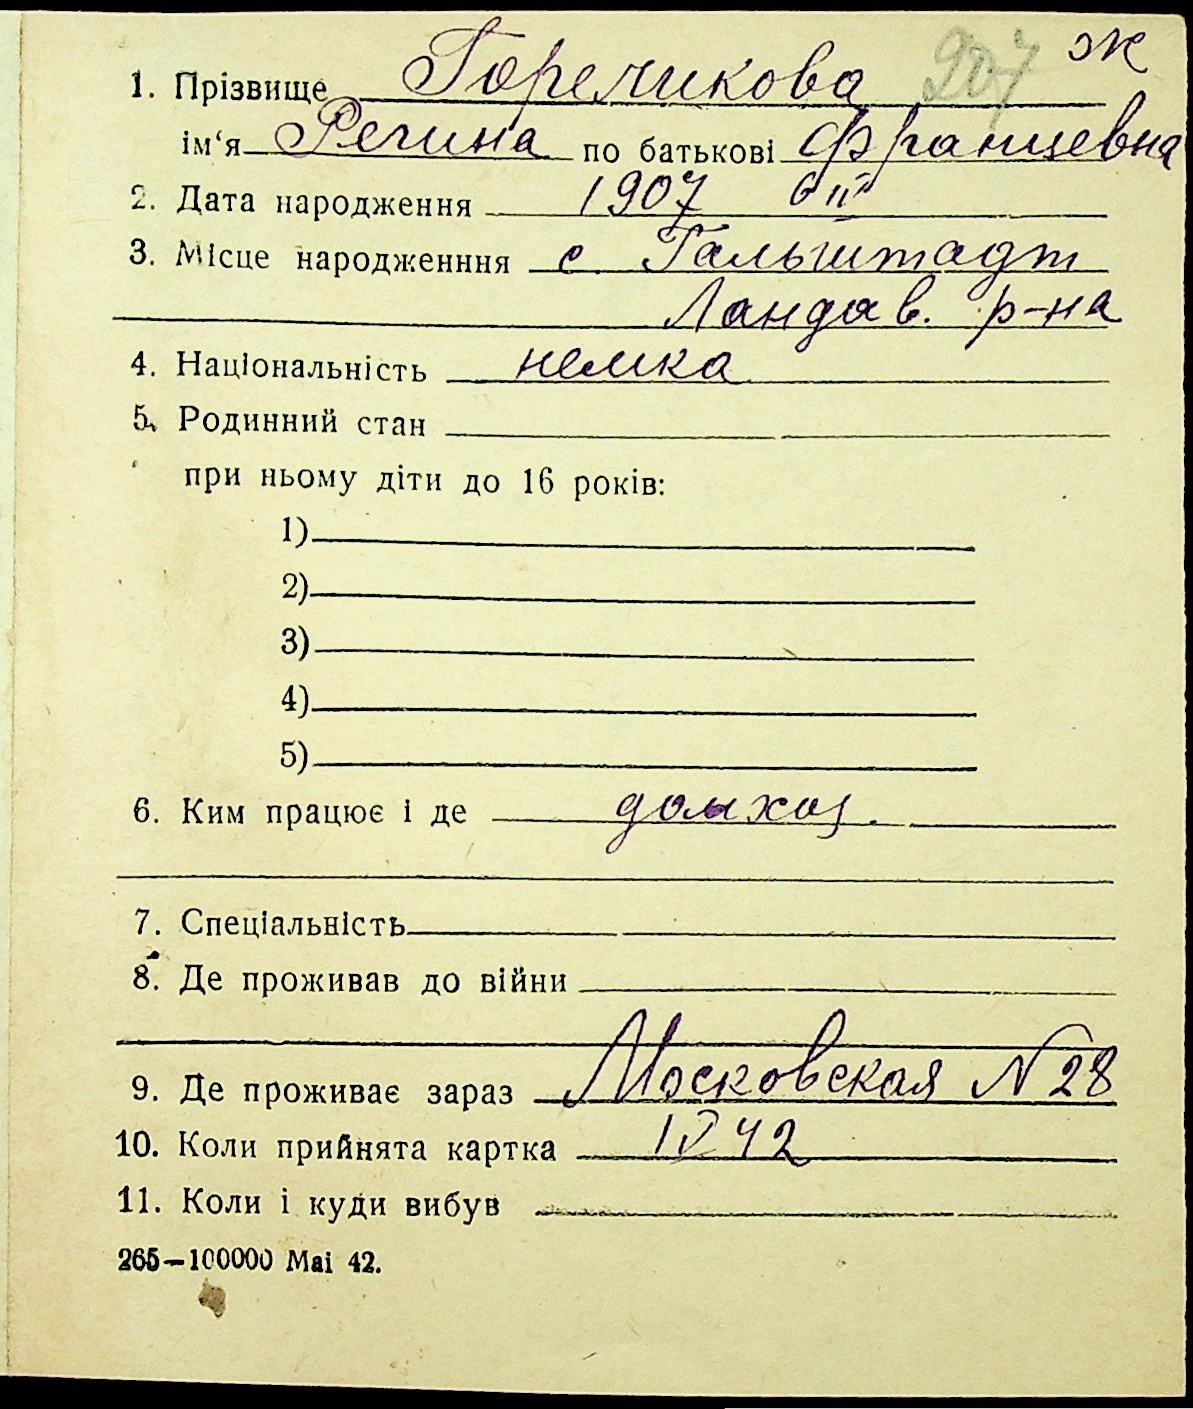 ж
207
1. Прізвище Горечикова
ім‘я Регина по батькові Францевна
2. Дата народження 1907 6 II
3. Місце народженння с. Гальштадт
Ландав. р-на
4. Національність немка
5. Родинний стан
при ньому діти до 16 років:
1)
2)
3)
4)
5)
6. Ким працює і де домхоз.
7. Спеціальність
8. Де проживав до війни
9. Де проживає зараз Московская N 28
10. Коли прийнята картка 1 V 42
11. Коли і куди вибув
265—100000 Маі 42.